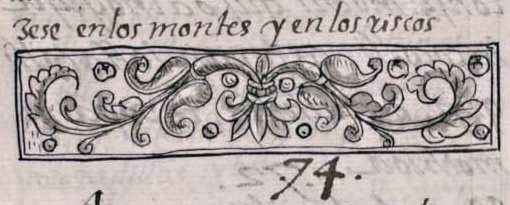 zese en los montes y en los riscos
.74.